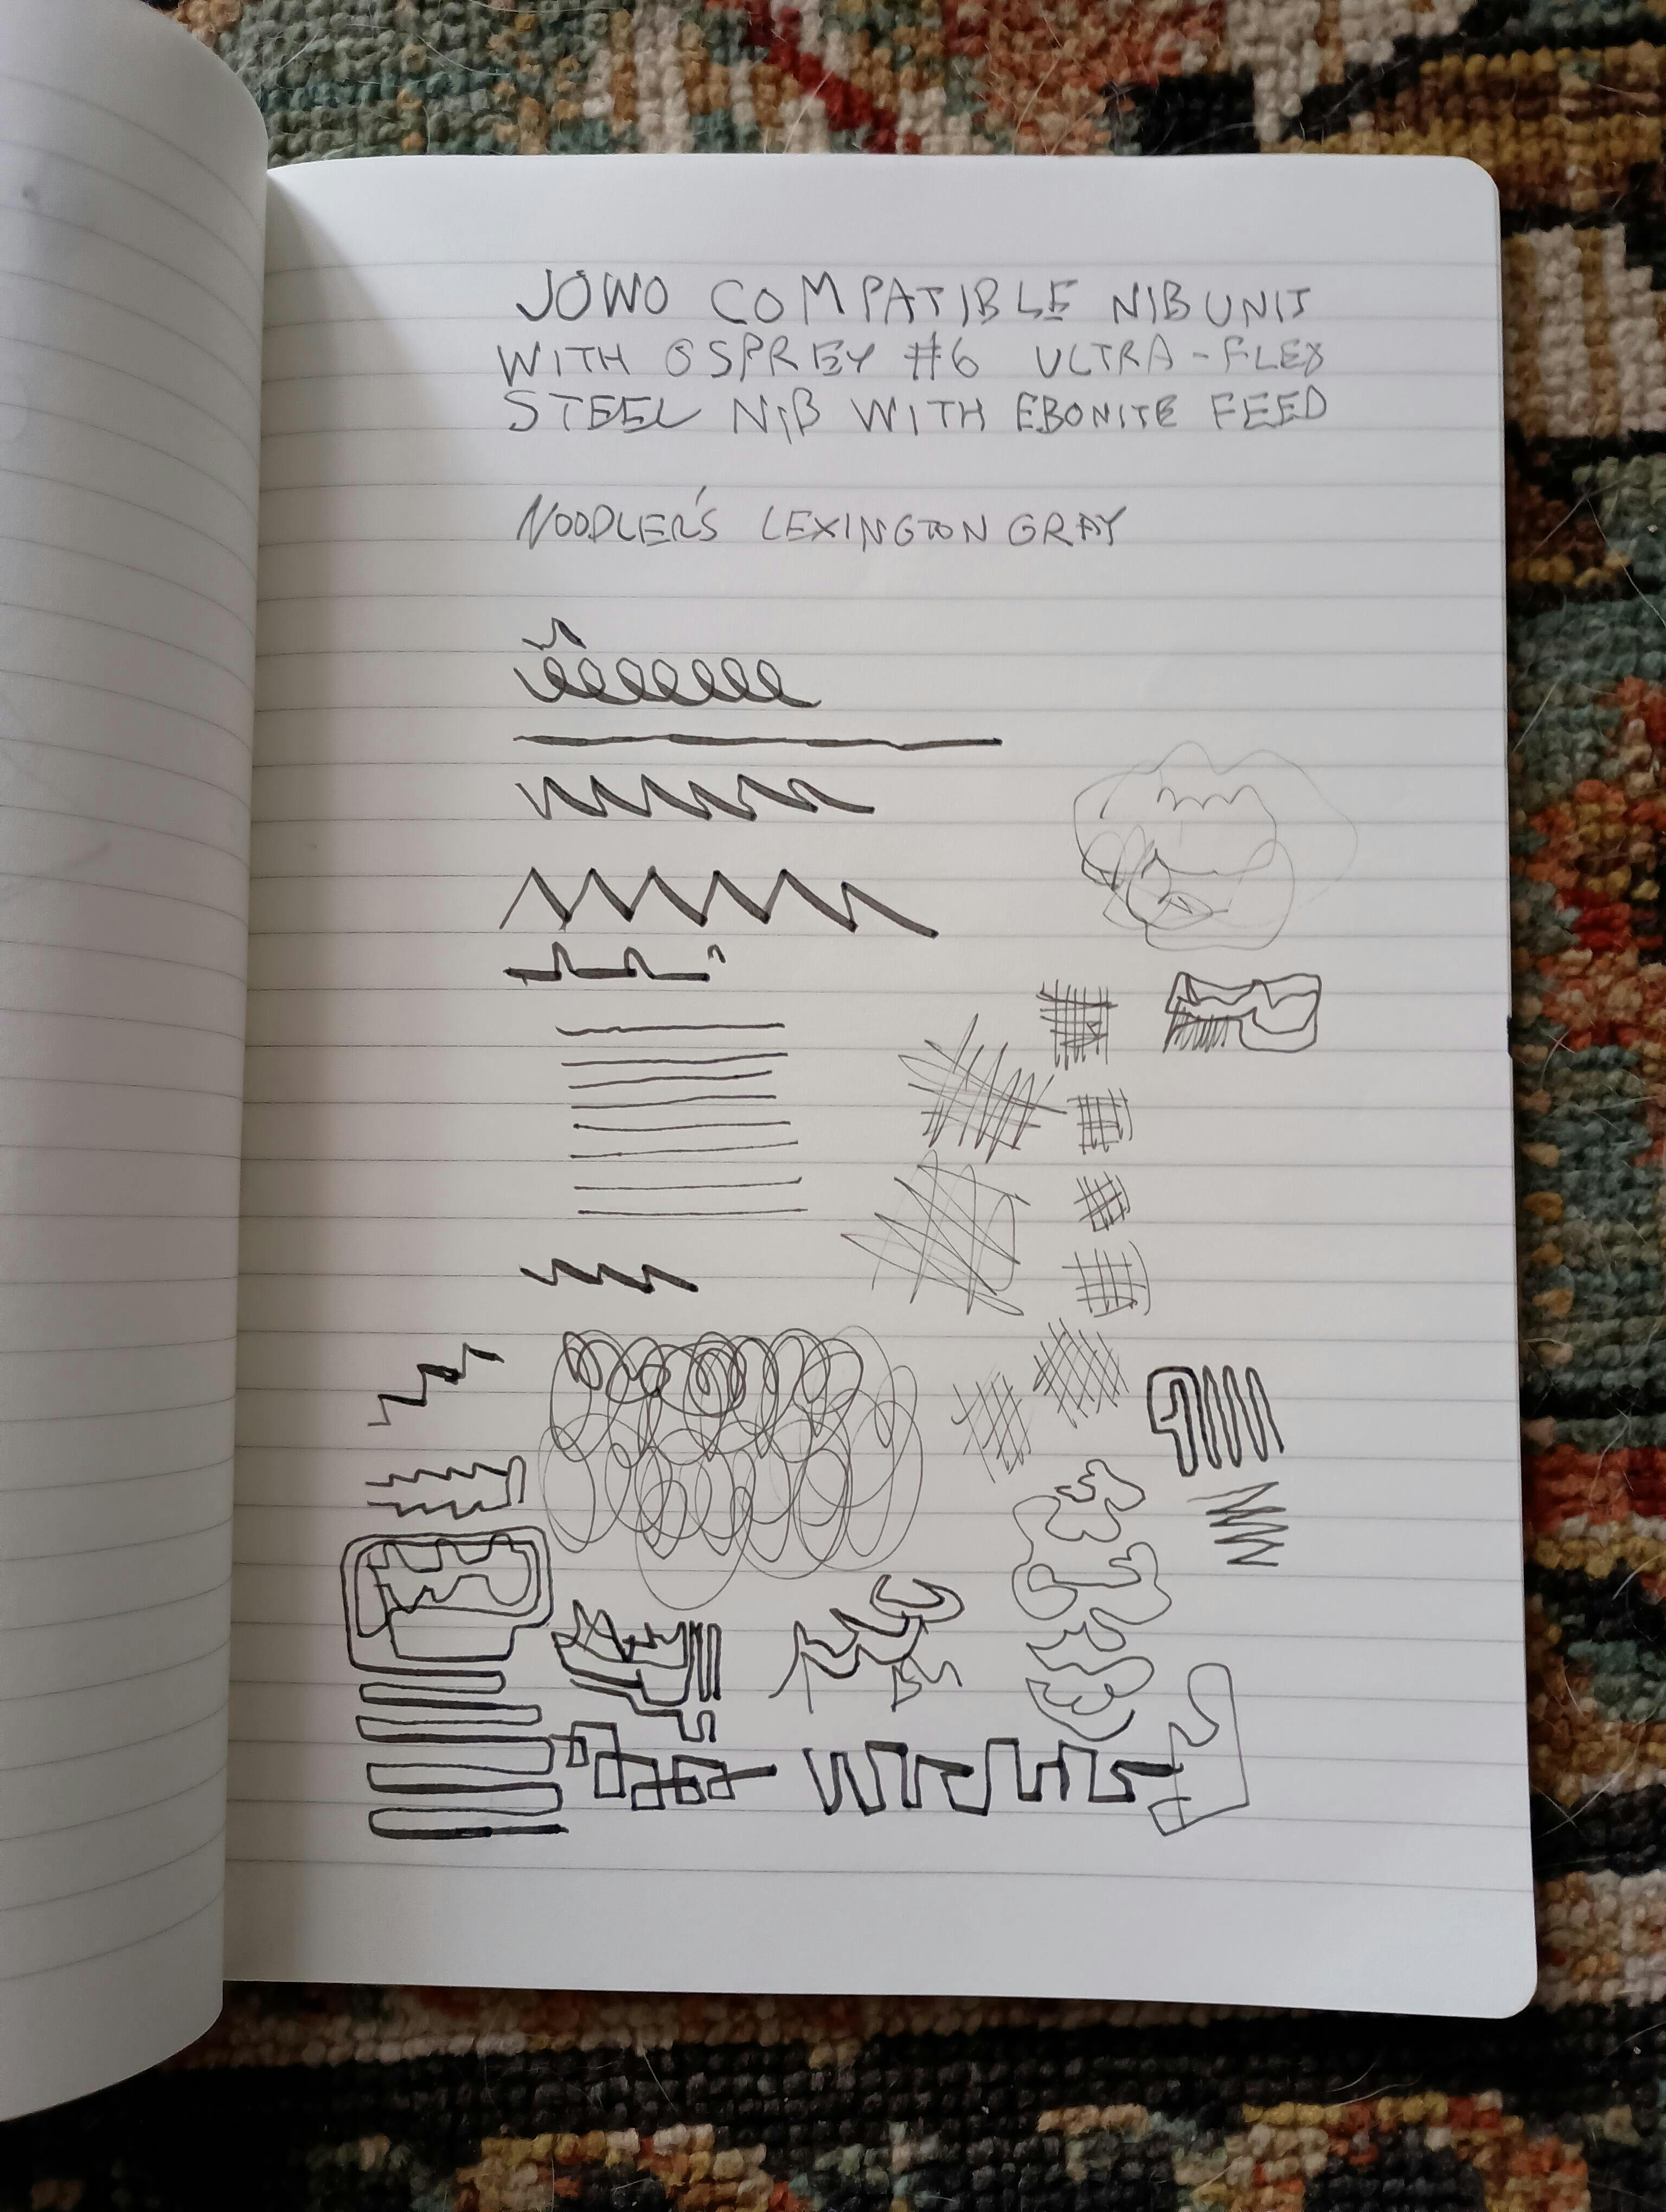 JOWO COMPATIBLE NIB UNIT
WITH OSPREY #6 ULTRA-FLEX
STEEL NIB WITH EBONITE FEED
NOODLER'S LEXINGTON GRAY